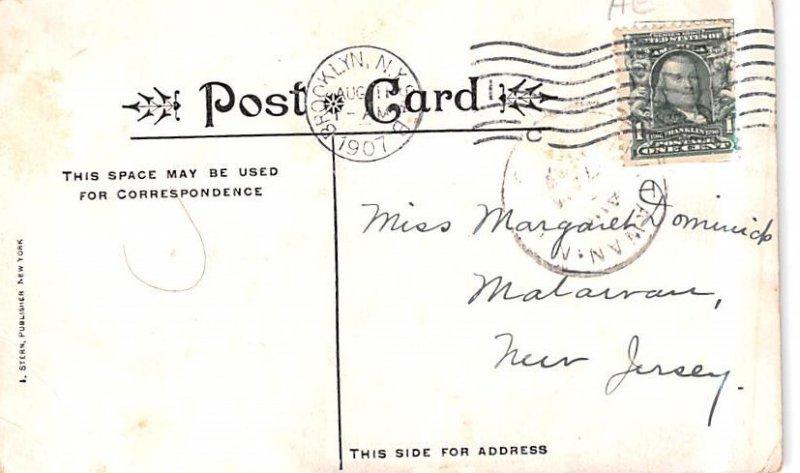 AE
Post Card
BROOKLYN, N.Y.
AUG 11
1907
C
SERIES 1902
UNITED STATES OF AMERICA
1 FRANKLIN 1
POSTAGE
ONE CENT
THIS SPACE MAY BE USED
FOR CORRESPONDENCE
Miss Margaret Dominick
Matawan,
New Jersey.
I. STERN, PUBLISHER NEW YORK
THIS SIDE FOR ADDRESS